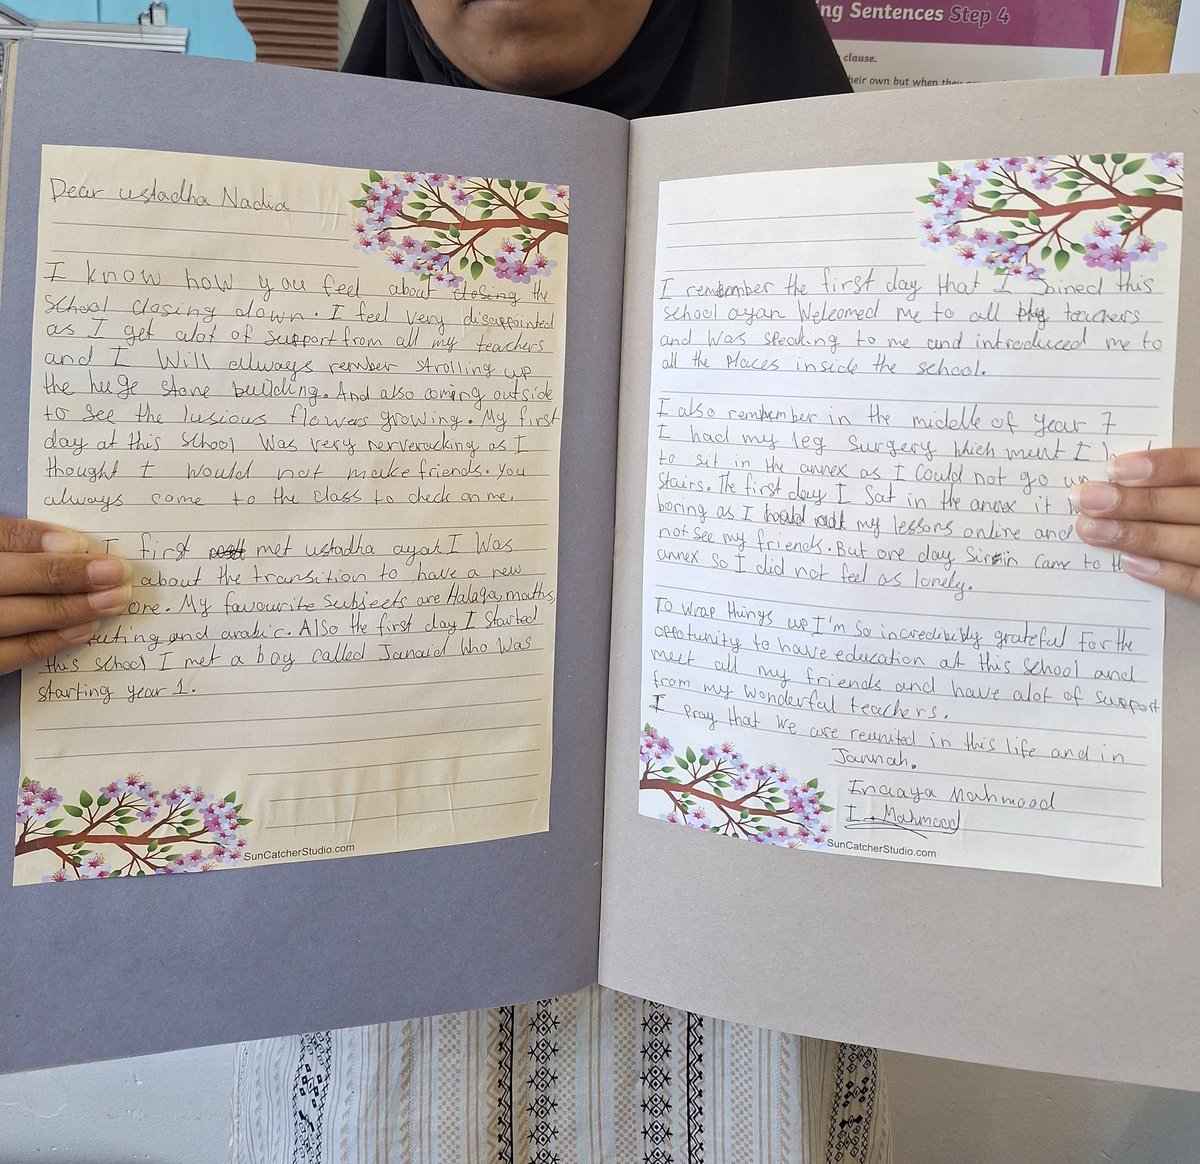 ng Sentences Step 4
clause.
heir own but when they
Dear ustadha Nadia
I know how you feel about closing the
school closing down. I feel very disappointed
as I get alot of support from all my teachers
and I will allways rember strolling up
the huge stone building. And also coming outside
to see the lusious flowers growing. My first
day at this school was very nerveracking as I
thought I would not make friends. You
always come to the class to check on me.
I first met ustadha ayah I was
about the transition to have a new
one. My favourite subjects are Halaqa, maths,
and arabic. Also the first day I started
this school I met a boy called Janaid who was
starting year 1.
SunCatcherStudio.com
I remember the first day that I Joined this
school ayan welcomed me to all teachers
and was speaking to me and introduced me to
all the places inside the school.
I also remember in the middle of year 7
I had my leg surgery which ment I
to sit in the annex as I could not go up
stairs. The first day I sat in the annex it
boring as I my lessons online and
not see my friends. But one day came to
annex so I did not feel as lonely.
To wrap things up I'm so incredibily grateful for the
oppotunity to have education at this school and
meet all my friends and have alot of support
from my wonderful teachers.
I pray that we are reunited in this life and in
Jannah.
Inaaya Mahmood
I. Mahmood
SunCatcherStudio.com